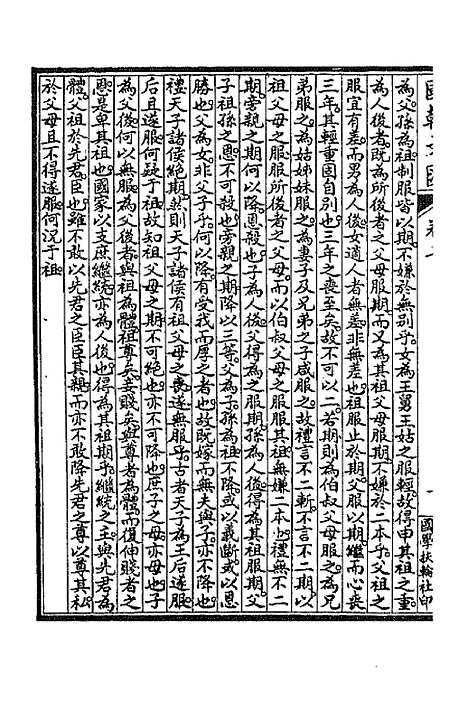 國朝文匯 卷
為父孫為祖制服皆以期不嫌於無別乎女為王舅王姑之服輕故得申其祖之重
為人後者既為所後者之父母服期而又為其祖父母服期不嫌於二本乎父祖之
服宜有差而男為人後女適人者無差非無差也祖服止於期父服以期繼而心喪
三年其輕重固自別也三年之喪至矣故不可以二若期則為伯叔父母服之為兄
弟服之為姑姊妹服之為妻子及兄弟之子咸服之故禮言不二斬不言不二期以
祖父母之服服所後者之父母而以伯叔父母之服服其祖無嫌二本少禮無不二
期旁親之期何以降恩殺也子為人後父得為之服期孫為人後得為其祖服期父
子祖孫之恩不可殺也旁親之期降以一等父為子孫為祖不降或以義斷或以恩
勝也父為女非父子乎何以降有受我而厚之者也故既嫁而無夫與子亦不降也
禮天子諸侯絕期然則天子諸侯有祖父母之喪遂無服乎古者天子為王后遂服
后且遂服何疑于祖故知祖父母之期不可絕也亦不可降也庶子之母亦母也子
為父後何以無服為父後者與祖為體祖尊矣妾賤矣與尊者為體而復伸賤者之
恩是卑其祖也國家以支庶繼統亦為人後也得為其祖期乎繼統之主與先君為
體父祖於先君臣也雖不敢以先君之臣臣其親而亦不敢降先君之尊以尊其私
於父母且不得遂服何況于祖
一
國學扶輪社印